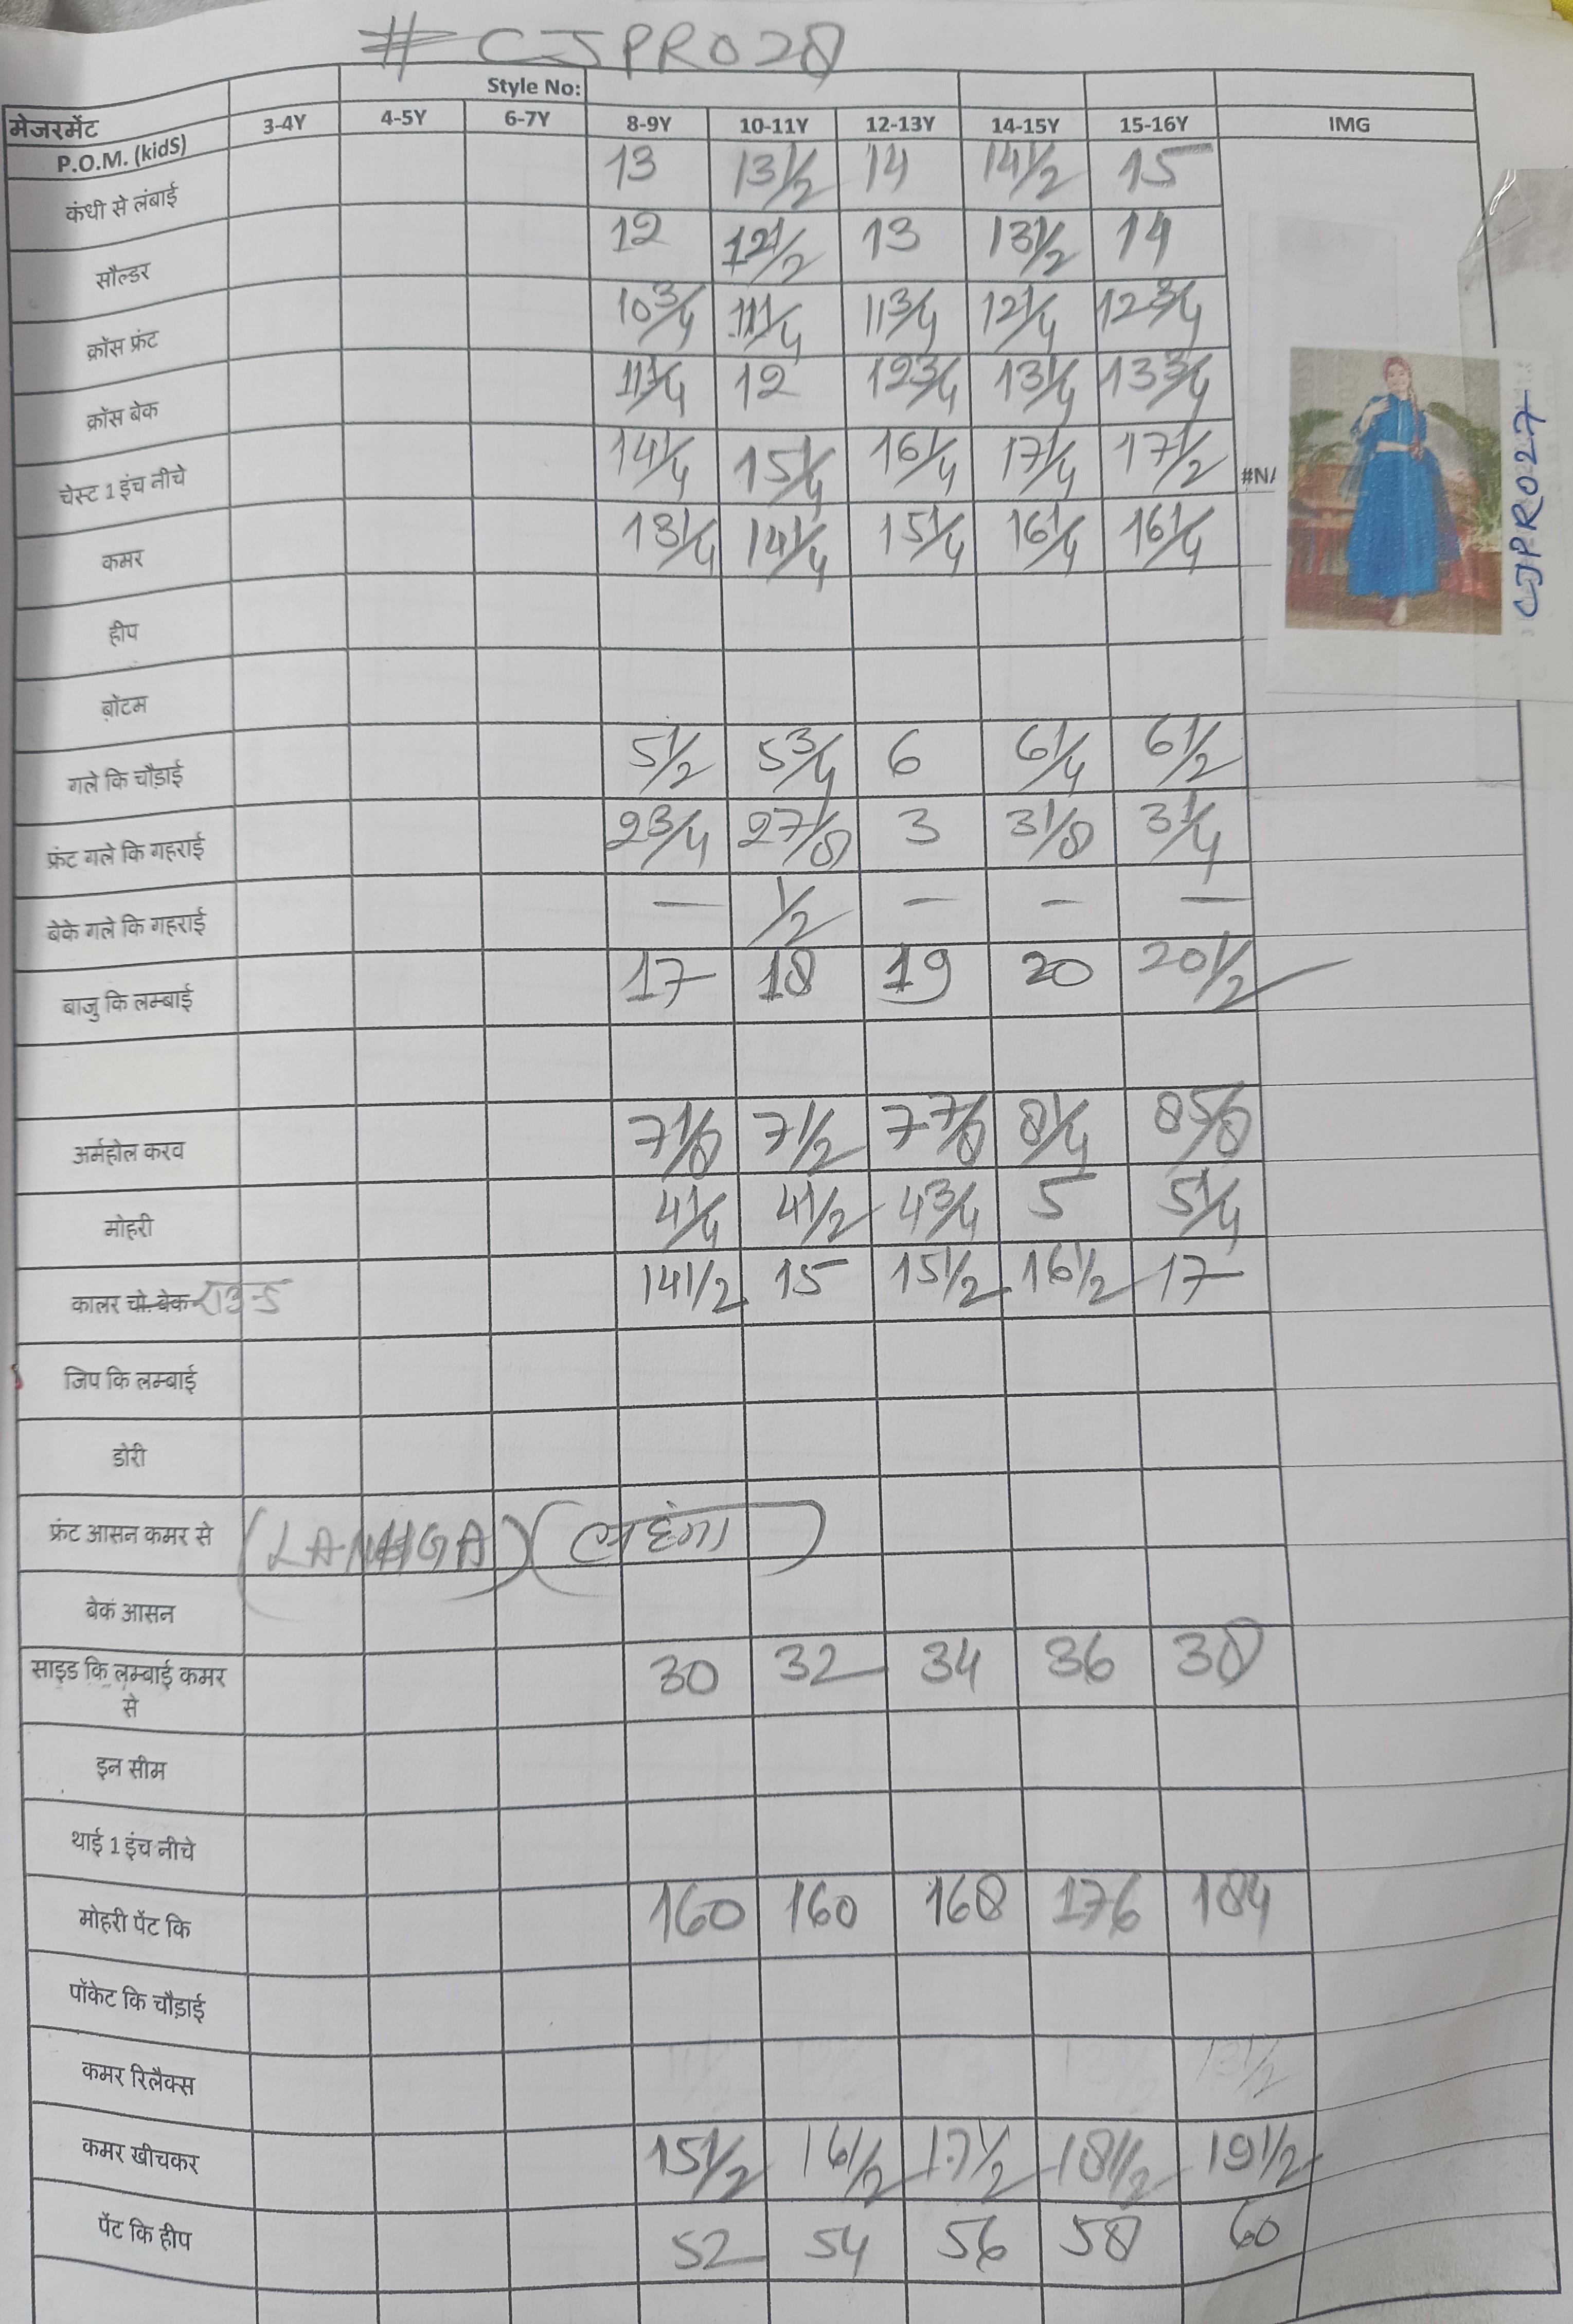 # CJPR028
Style No:
मेजरमेंट P.O.M. (kidS) 3-4Y 4-5Y 6-7Y 8-9Y 10-11Y 12-13Y 14-15Y 15-16Y IMG
कंधी से लंबाई 13 13 1/2 14 14 1/2 15
सौल्डर 12 12 1/2 13 13 1/2 14
क्रॉस फ्रंट 10 3/4 11 1/4 11 3/4 12 1/4 12 3/4
क्रॉस बेक 11 1/4 12 12 3/4 13 1/4 13 3/4
चेस्ट 1 इंच नीचे 14 1/4 15 1/4 16 1/4 17 1/4 17 1/2
#N/
कमर 13 1/4 14 1/4 15 1/4 16 1/4 16 1/4
CJPR027
हीप
बॉटम
गले कि चौड़ाई 5 1/2 5 3/4 6 6 1/4 6 1/2
फ्रंट गले कि गहराई 2 3/4 2 7/8 3 3 1/8 3 1/4
बेके गले कि गहराई — 1/2 — - —
बाजु कि लम्बाई 17 18 19 20 20 1/2
अर्महोल करव 7 1/8 7 1/2 7 7/8 8 1/4 8 5/8
मोहरी 4 1/4 4 1/2 4 3/4 5 5 1/4
कालर चो. बेक राउन्ड 14 1/2 15 15 1/2 16 1/2 17
जिप कि लम्बाई
डोरी
फ्रंट आसन कमर से (LANHGA) (लहंगा)
बेक आसन
साइड कि लम्बाई कमर से 30 32 34 36 38
इन सीम
थाई 1 इंच नीचे
मोहरी पेंट कि 160 160 168 176 184
पॉकेट कि चौड़ाई
कमर रिलैक्स
कमर खीचकर 15 1/2 16 1/2 17 1/2 18 1/2 19 1/2
पेंट कि हीप 52 54 56 58 60